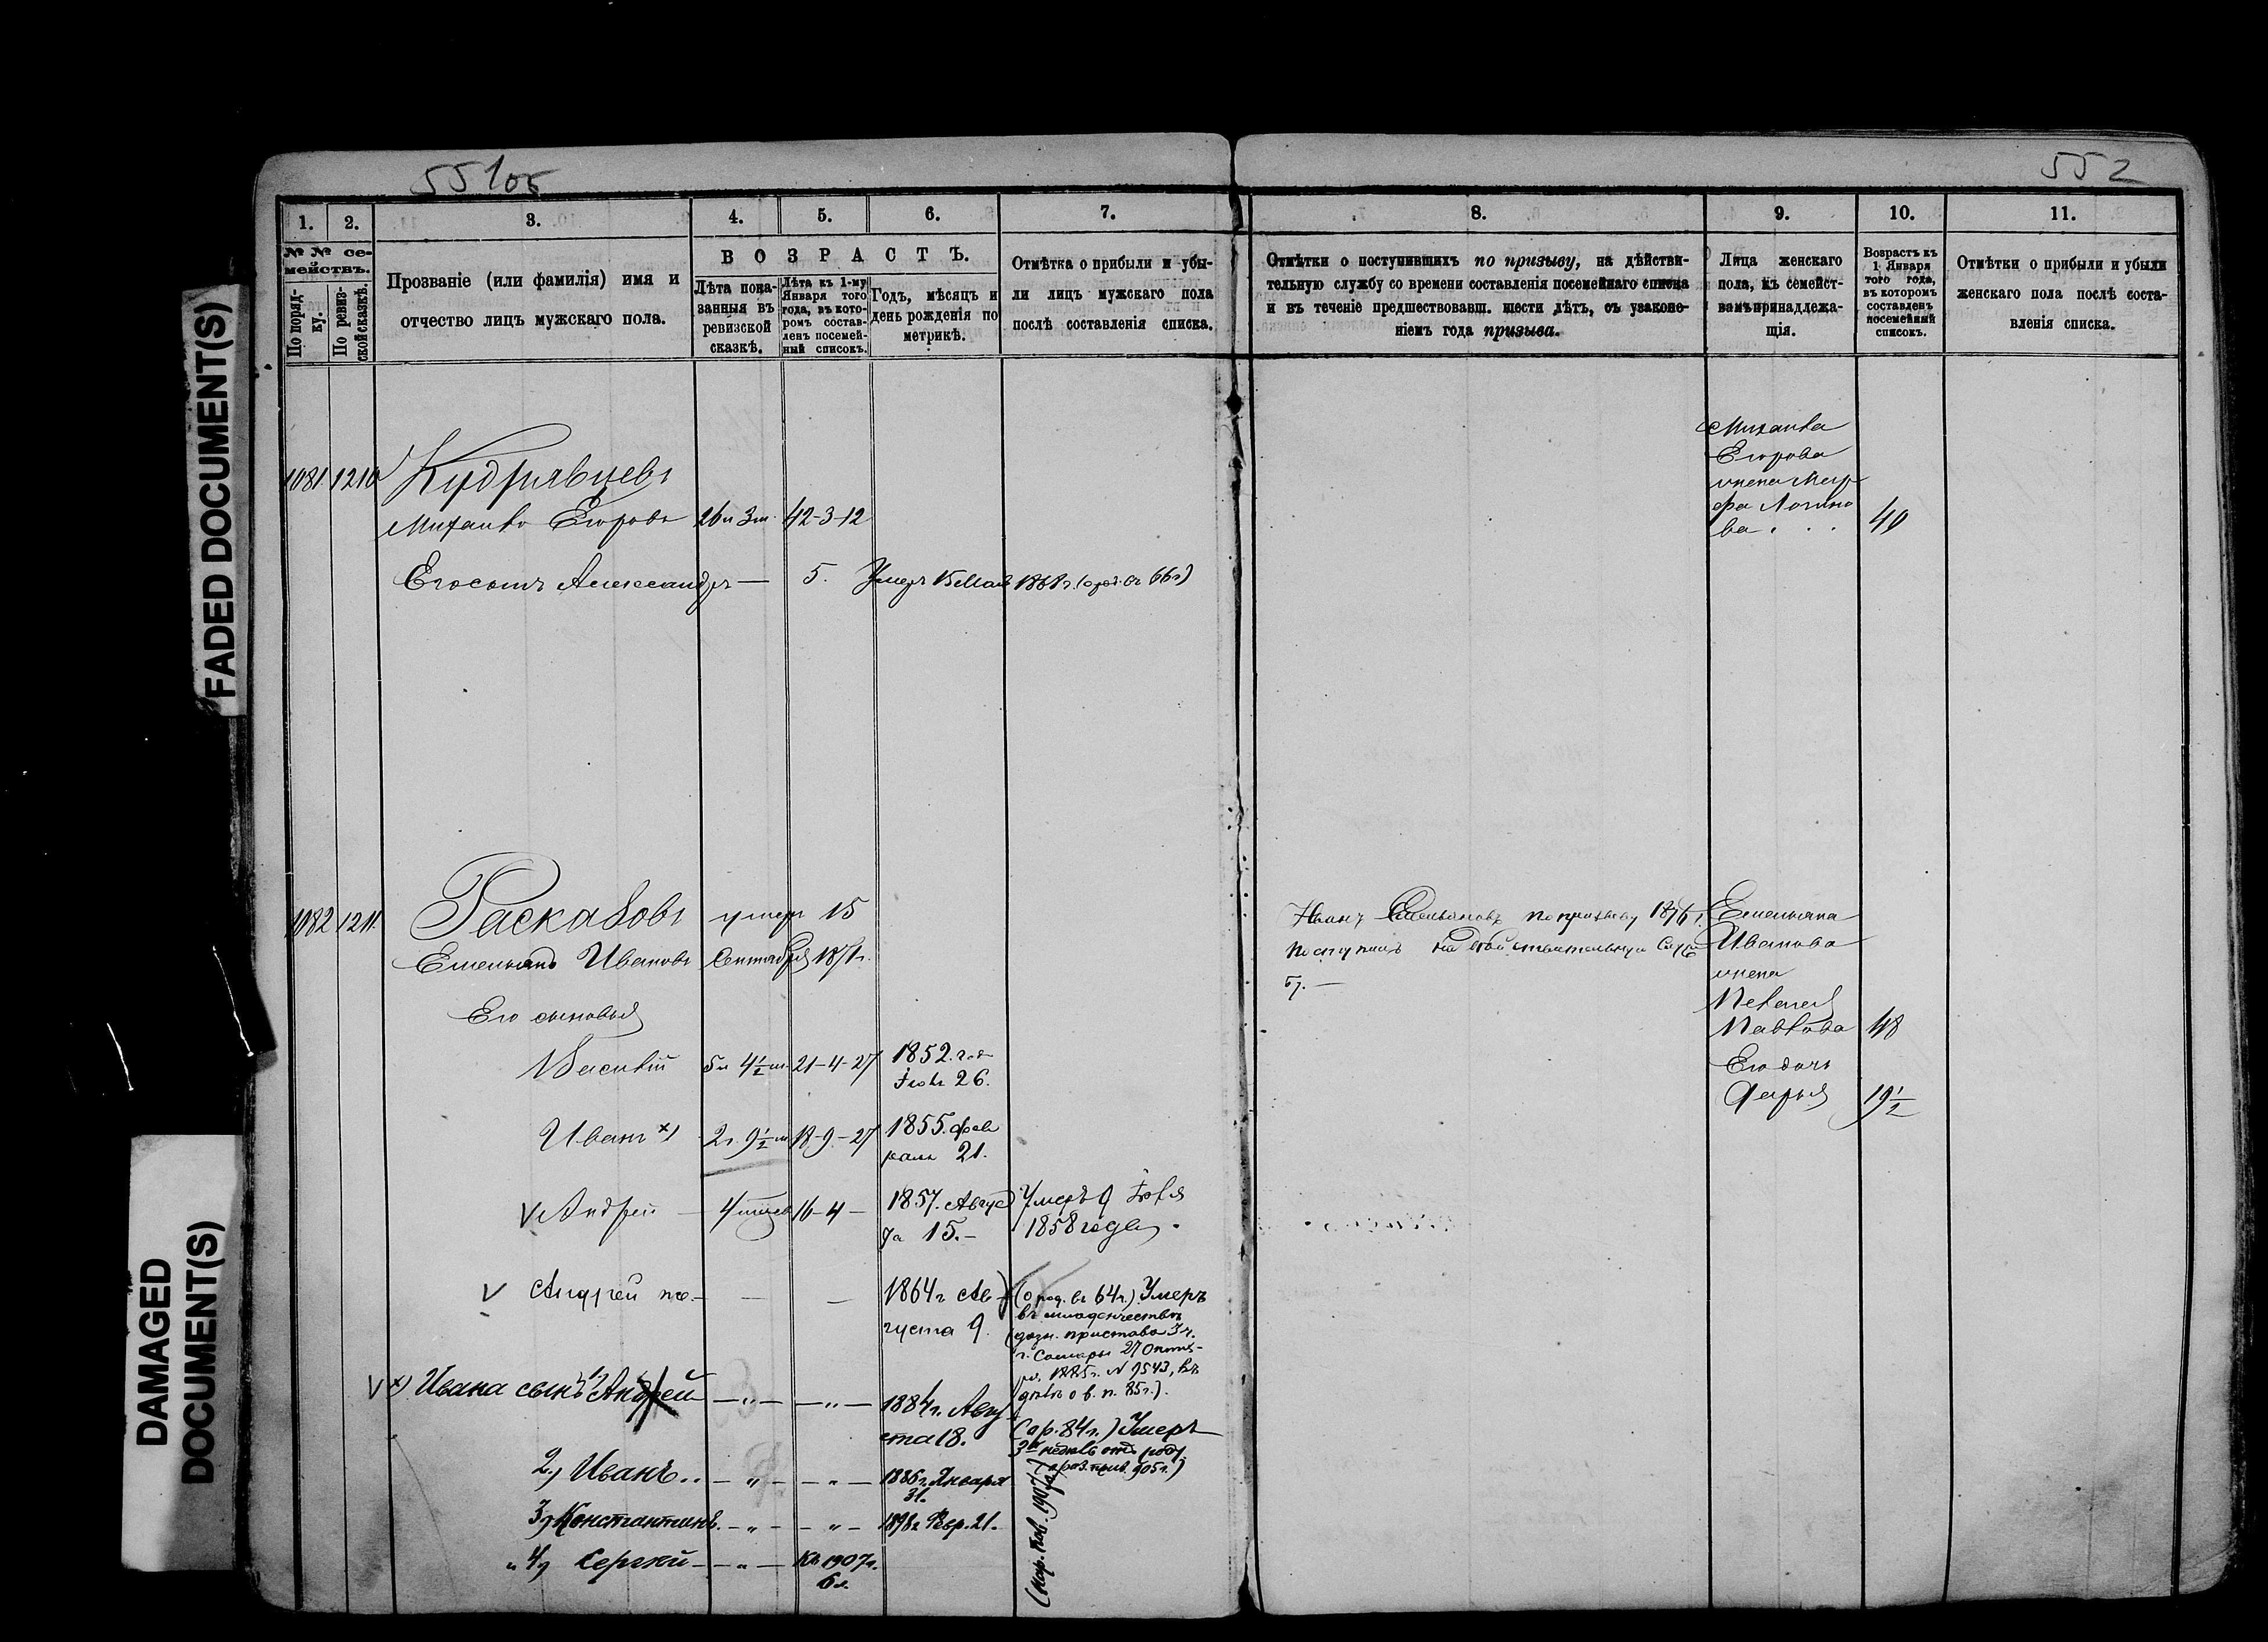 55105
552
1.
2.
3.
4.
5.
6.
7.
8.
9.
10.
11.
№ № се-
мействъ.
По поряд-
ку.
По ревиз-
ской сказкѣ.
Прозваніе (или фамилія) имя и
отчество лицъ мужскаго пола.
ВОЗРАСТЪ.
Лѣта пока-
занныя въ
ревизской
сказкѣ.
Лѣта къ 1-му
Января того
года, въ кото-
ромъ состав-
ленъ посемей-
ный списокъ.
Годъ, мѣсяцъ и
день рожденія по
метрикѣ.
Отмѣтка о прибыли и убы-
ли лицъ мужскаго пола
послѣ составленія списка.
Отмѣтки о поступившихъ по призыву, на дѣйстви-
тельную службу со времени составленія посемейнаго списка
и въ теченіе предшествовавш. шести лѣтъ, съ узаконе-
ніемъ года призыва.
Лица женскаго
пола, къ семейст-
вамъ принадлежа-
щія.
Возрастъ къ
1 Января
того года,
въ которомъ
составленъ
посемейный
списокъ.
Отмѣтки о прибыли и убыли
женскаго пола послѣ соста-
вленія списка.
1081 1210 Кудрявцевъ
Михаило Егоровъ 26 и 3 м. 42-3-12
Его сынъ Александръ — 5. Умеръ 15 Мая 1868 г. (о род. въ 66 г)
Михаила
Егорова
жена Мар
фа Логино
ва . . . 40
1082 1211. Расказовъ умеръ 15
Емельянъ Ивановъ Сентября 1871 г.
Его сыновья
Василій 5 и 4½ м. 21-4-27 1852. год
Іюль 26.
Иванъ х) 2 г. 9½ м 18-9-27 1855. Фев
раль 21.
V Андрей — 4 мѣсяц 16-4— 1857. Авгус
та 15.— Умеръ 9 Іюля
1858 года.
V Андрей же.— — — 1864 г Ав
густа 9.
(о род. въ 64 г.) Умеръ
въ младенчествѣ
(дозн. пристава 3 ч.
г. Самары 27 Октяб-
ря 1885 г. N 9543, въ
дѣлѣ о в. п. 85 г.).
V х) Ивана сынъ 1) Андрей — „ — — „ — 1884 г. Авгу
ста 18.
(о р. 84 г.) Умеръ
3х недѣль отъ роду
(о род. прив. 905 г.)
2.) Иванъ.. — „ — — „ — 1886 г. Января
31.
3) Константинъ. — „ — — „ — 1898 г. Февр. 21.
„ 4) Сергѣй — — „ — Къ 1907 г.
6 л.
Иванъ Емельяновъ по призыву 1876 г.
поступилъ на дѣйствительную Служ
бу. —
Емельяна
Иванова
жена
Пелагея
Павлова 48
Его дочь
Дарья 19½
FADED DOCUMENT(S)
DAMAGED
DOCUMENT(S)